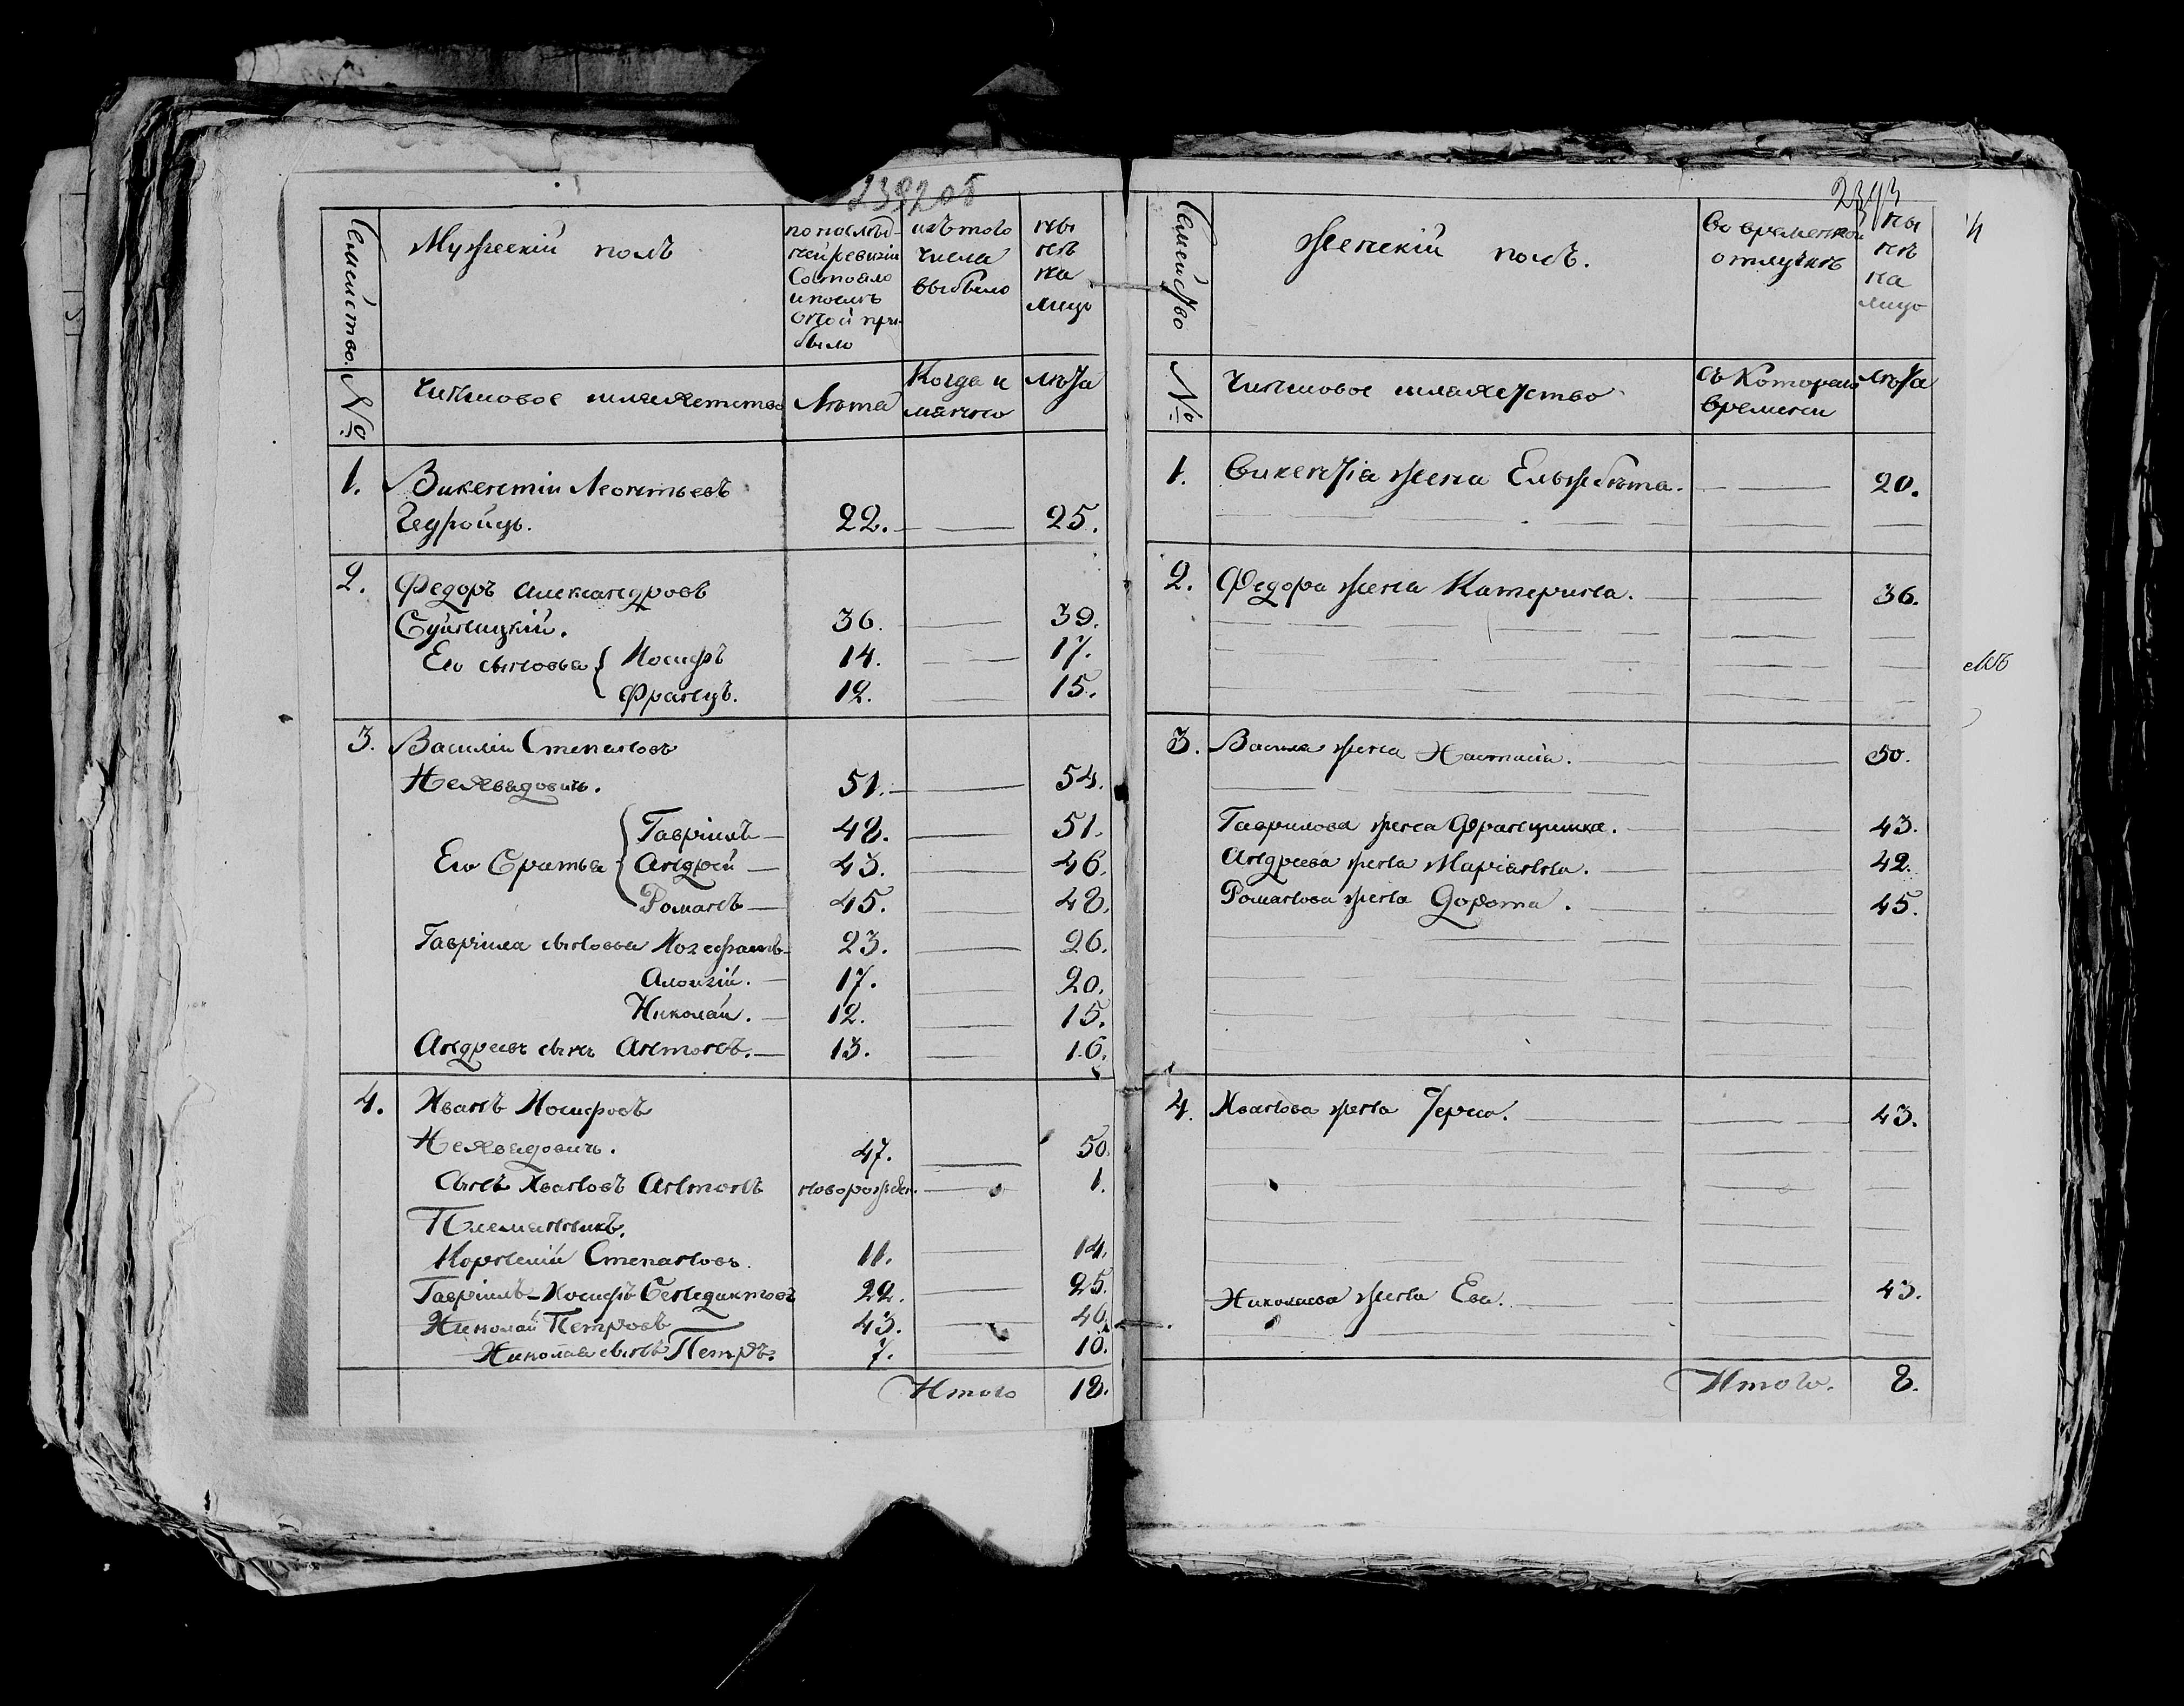 2392 об
Семейство.
Мужескій полъ
по послѣд-
ней ревизіи
состояло
и послѣ
оной при-
было
изъ того
числа
выбыло
ны
нѣ
на
лицо
№
Чиншовое шляхетство
Лѣта
Когда и
именно
лѣта
1. Викентій Леонтьевъ
Гедройцъ. 22. 25.
2. Федоръ Александровъ
36. 39.
Его сыновья { Іосифъ 14. 17.
Францъ. 12. 15.
3. Василій Степановъ
Нехведовичъ. 51. 54.
Гавріилъ 48. 51.
Его братья { Андрей 43. 46.
Романъ 45. 48.
Гавріила сыновья Іозефатъ 23. 26.
Алоизій. 17. 20.
Николай. 12. 15.
Андреевъ сынъ Антонъ. 13. 16.
4. Иванъ Іосифовъ
Нехведовичъ. 47. 50.
Сынъ Ивановъ Антонъ новорожден. 1.
Племянникъ.
Корнелій Степановъ 11. 14.
Гавріилъ-Іосифъ Бенедиктовъ 22. 25.
Николай Петровъ 43. 46.
Николая сынъ Петръ. 7. 10.
Итого 18.
2393
Семейство
Женскій полъ.
Во временной
отлучкѣ
ны
нѣ
на
лицо
№
Чиншовое шляхетство
съ котораго
времени
лѣта
1. Викентія жена Ельжбѣта. 20.
2. Федора жена Катерина. 36.
3. Василя жена Настасія. 50.
Гаврилова жена Францишка. 43.
Андреева жена Маріанна. 42.
Романова жена Дорота. 45.
4. Иванова жена 43.
Николаева жена Ева. 43.
Итого. 8.